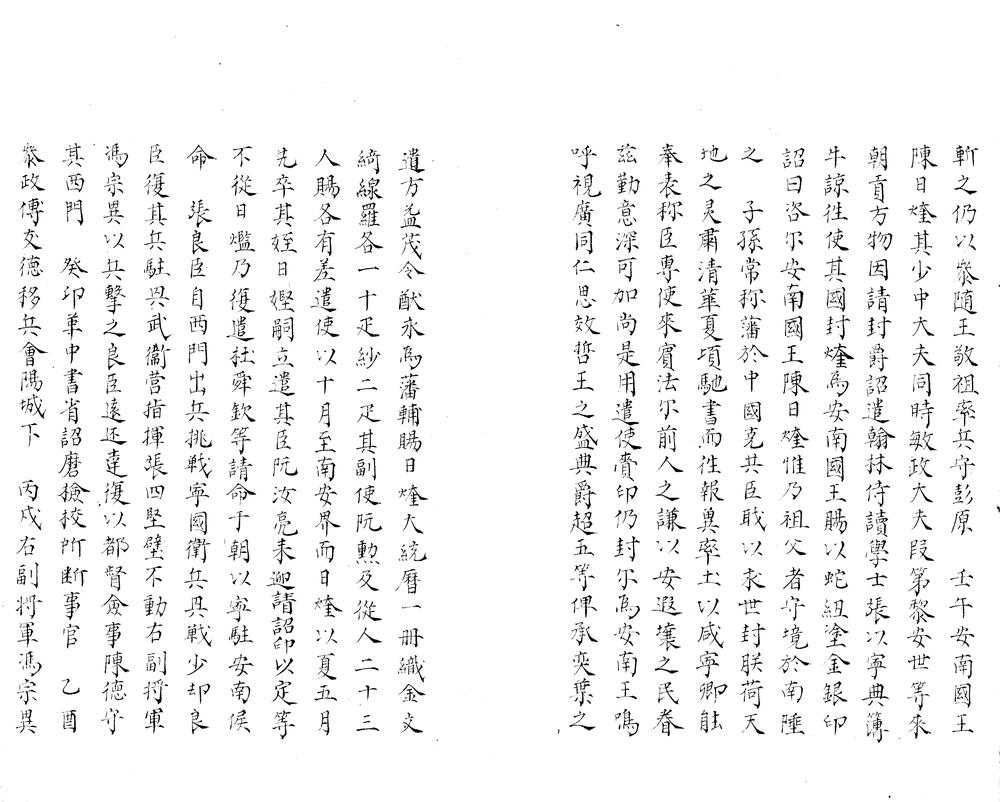 斬之仍以叅随王敬祖率兵守彭原　壬午安南國王
陳日煃其少中大夫同時敏政大夫叚第黎安世等來
朝貢方物因請封爵詔遣翰林侍讀學士張以寧典簿
牛諒徃使其國封煃爲安南國王賜以蛇紐塗金銀印
詔曰咨尔安南國王陳日煃惟乃祖父者守境於南陲
之　子孫常称藩於中國克共臣職以永世封朕荷天
地之灵肅清華夏頃馳書而徃報兾率土以咸寧卿能
奉表称臣專使來賓法尔前人之謙以安遐壤之民眷
兹勤意深可加尚是用遣使賫印仍封尔爲安南王嗚
呼視廣同仁思效哲王之盛典爵超五等俾承奕葉之
遺方益茂令猷永爲藩輔賜日煃大統曆一册織金文
綺線羅各一十疋紗二疋其副使阮勲及從人二十三
人賜各有差遣使以十月至南安界而日煃以夏五月
先卒其姪日熞嗣立遣其臣阮汝亮耒迎請詔印以定等
不從日爁乃復遣社舜欽等請命于朝以寧駐安南俟
命　張良臣自西門出兵挑戦寧國衛兵與戦少却良
臣復其兵駐吳武衞营指揮張四堅壁不動右副将軍
馮宗異以兵擊之良臣遠还違復以都督僉事陳德守
其西門　癸卯革中書省詔磨撿挍所断事官　乙酉
叅政傅友德移兵會隅城下　丙戍右副将軍馮宗異